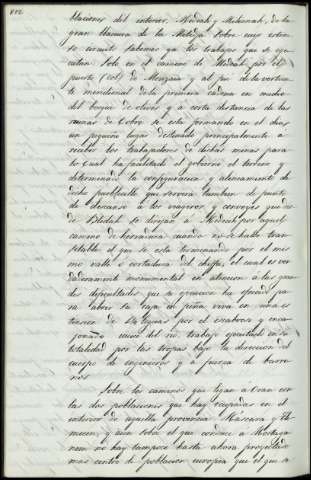 blaciones del interior, Medeah y Milianah, de la
gran llanura de la Mitidja sobre cuyo exten-
so circuito sabemos ya los trabajos que se eje-
cutan. Solo en el camino de Medeah por el
puerto (col) de Mouzaia y al pie de la vertien-
te meridional de la primera cadena en medio
del bosque de olivos y á corta distancia de las
minas de Cobre se está formando en el dia
un pequeño lugar destinado principalmente á
recibir los trabajadores de dichas minas para
lo cual ha facilitado el gobierno el terreno y
determinado la configuracion y alineamiento de
dicho pueblecillo que servirá tambien de punto
de descanso á los viageros y convoyes que des-
de Blidah se dirijan á Medeah por aquel
camino de herradura cuando no se halle tran-
sitable el que se está terminando por el mis-
mo valle ó cortadura del Chiffa, el cual es ver-
daderamente monumental en atencion á las gran-
des dificultades que se ofrecian
para abrir su caja en peña viva en una es-
tension de leguas por el escabroso y enca-
jonado curso del rio, trabajo ejecutado en su
totalidad por las tropas bajo la direccion del
cuerpo de ingenieros y á fuerza de barre-
nos.
Sobre los caminos que ligan á Oran con
las dos poblaciones que hay ocupadas en el
interior de aquella provincia Máscara y Tle-
mecen, y aun sobre el que conduce á Mostaga-
nem no hay tampoco hasta ahora proyectado
mas centro de poblacion europea que el que se